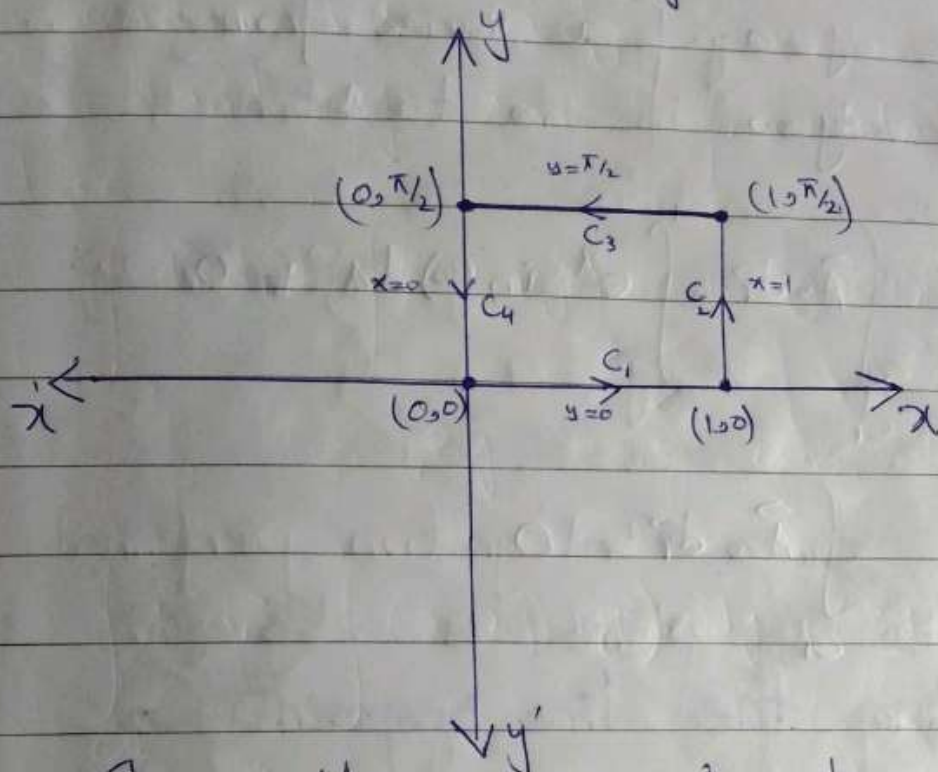 y
y=π/2
(0,π/2)
(1,π/2)
C3
x=0
C4
C2
x=1
C1
x'
(0,0)
y=0
(1,0)
x
y'